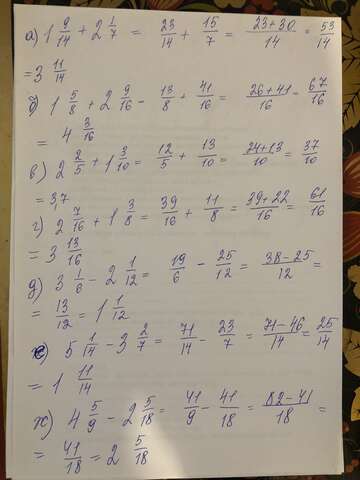 а) 1 9/14 + 2 1/7 = 23/14 + 15/7 = (23+30)/14 = 53/14
= 3 11/14
б) 1 5/8 + 2 9/16 - 13/8 + 41/16 = (26+41)/16 = 67/16
= 4 3/16
в) 2 2/5 + 1 3/10 = 12/5 + 13/10 = (24+13)/10 = 37/10
= 3,7
г) 2 7/16 + 1 3/8 = 39/16 + 11/8 = (39+22)/16 = 61/16
= 3 13/16
д) 3 1/6 - 2 1/12 = 19/6 - 25/12 = (38-25)/12 =
= 13/12 = 1 1/12
е) 5 1/14 - 3 2/7 = 71/14 - 23/7 = (71-46)/14 = 25/14
= 1 11/14
ж) 4 5/9 - 2 5/18 = 41/9 - 41/18 = (82-41)/18 =
= 41/18 = 2 5/18